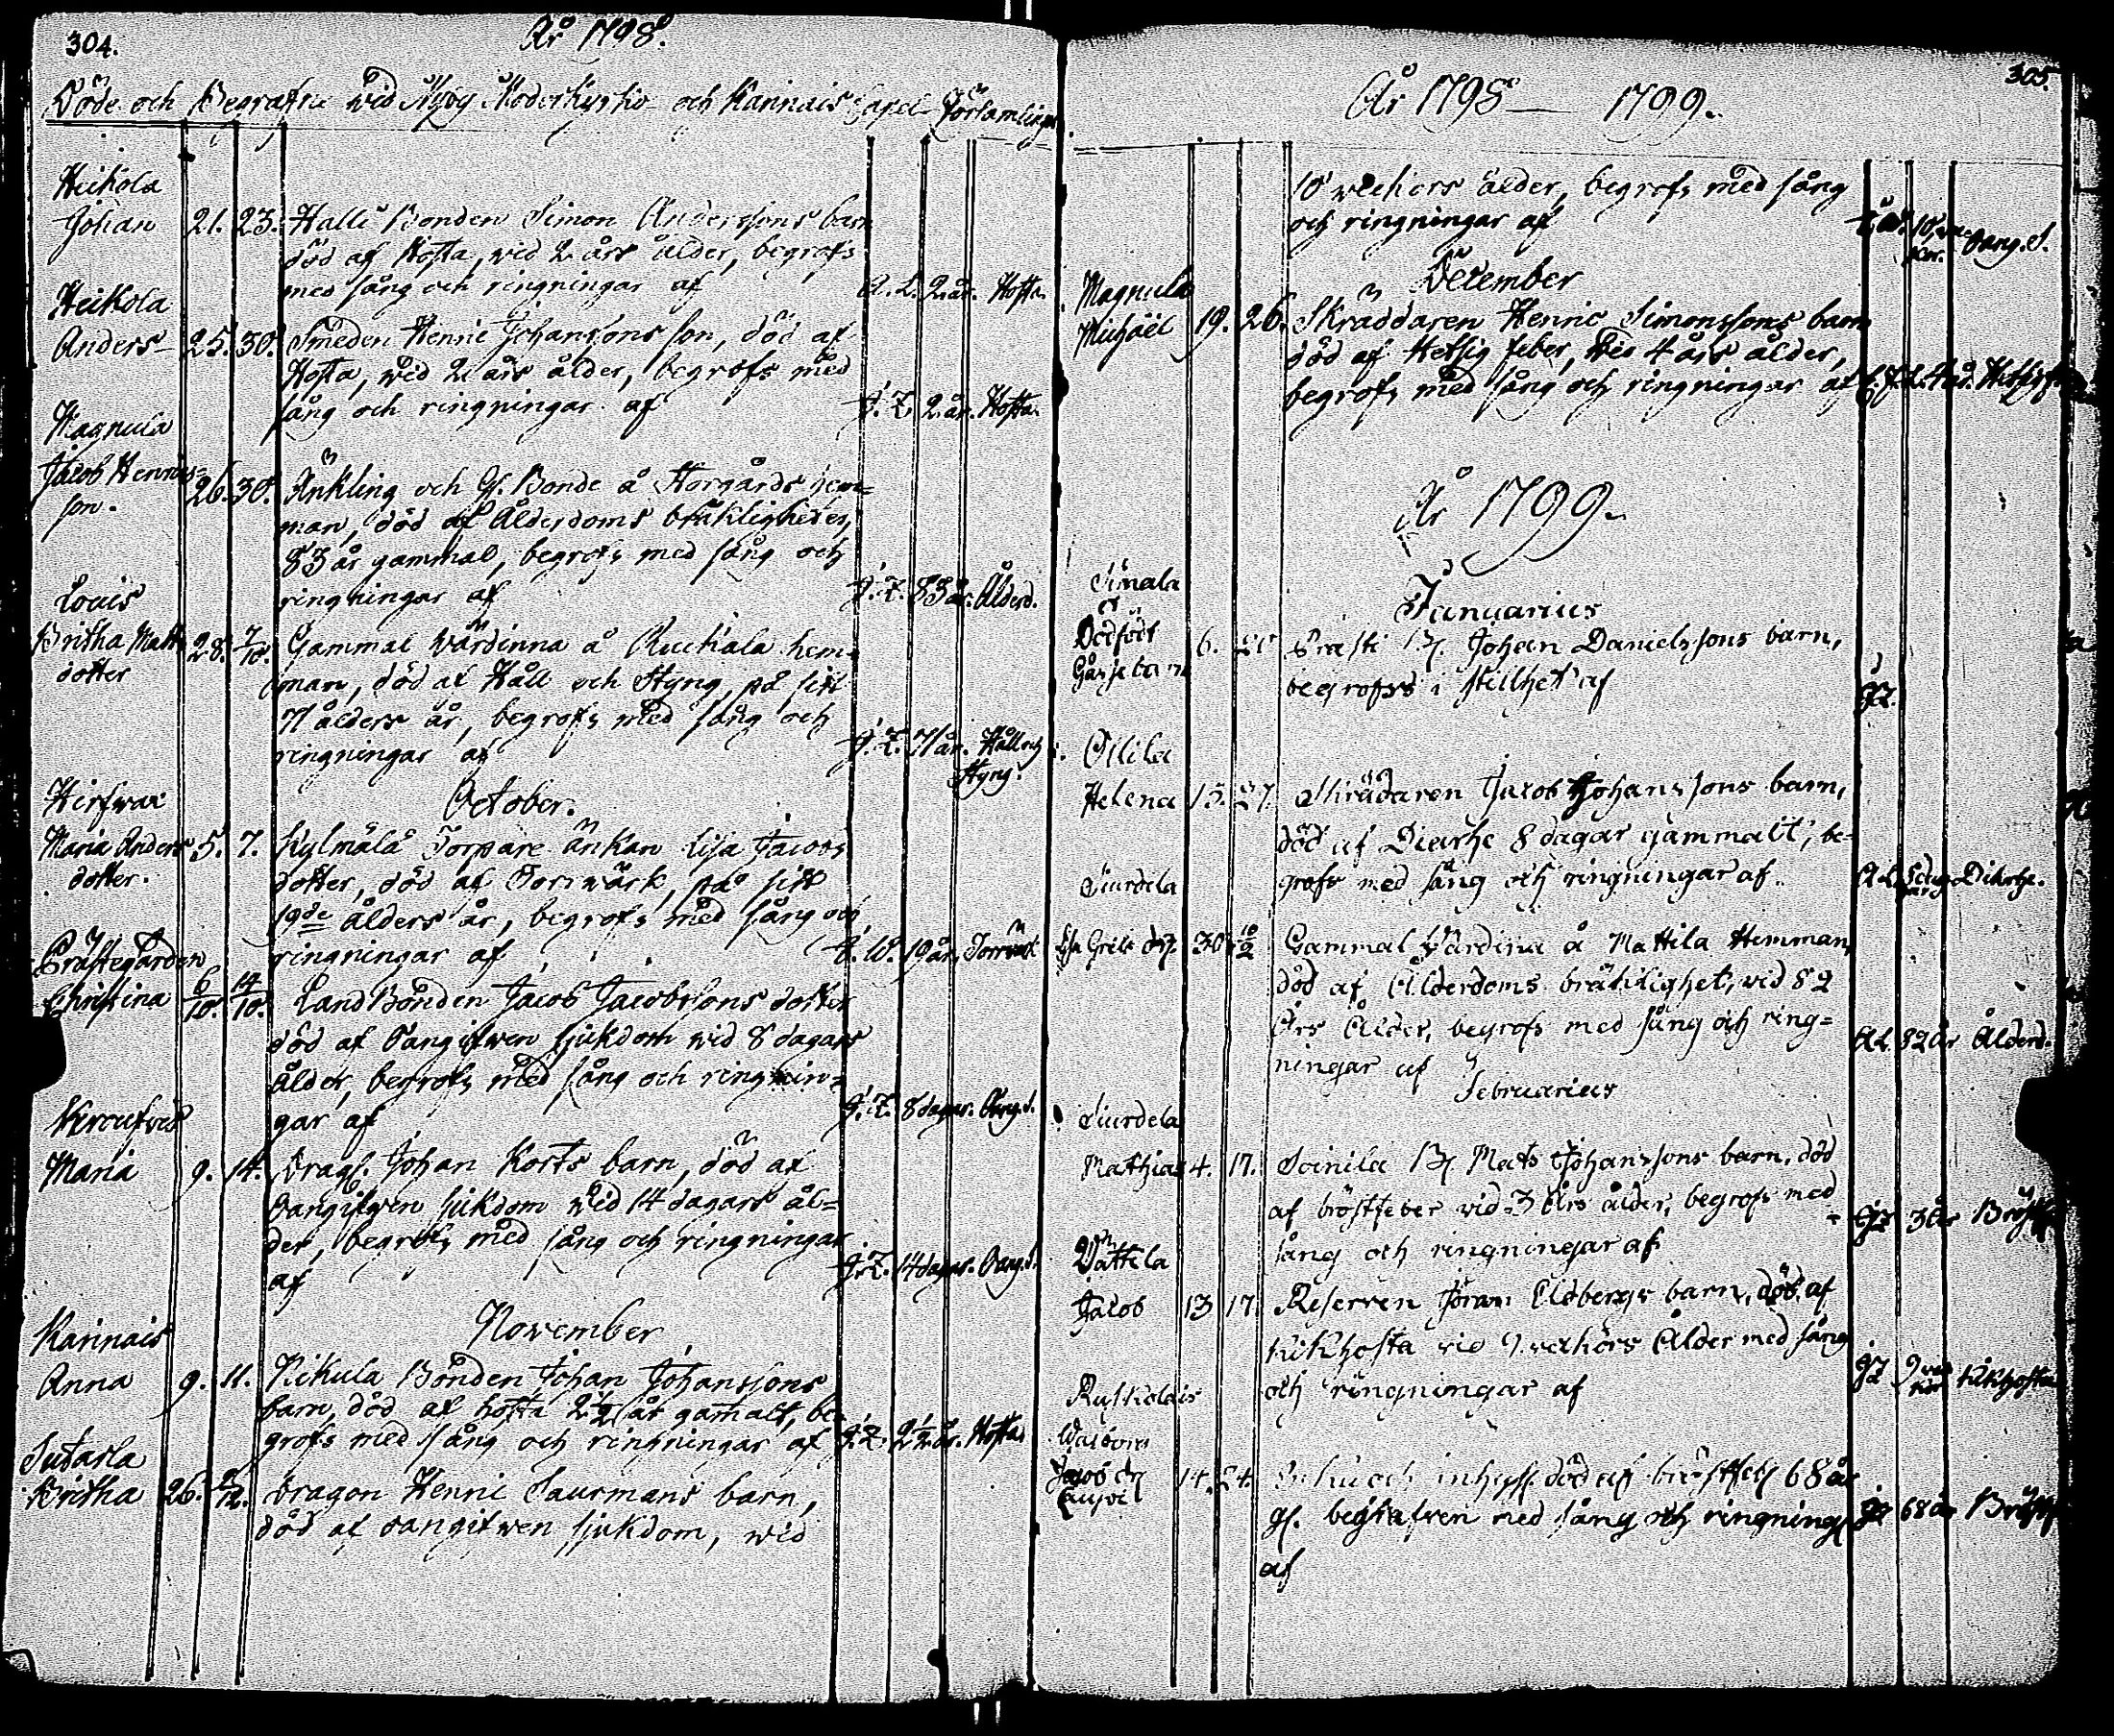 304.
År 1798.
Döde och Begrafne wid Nyby Moderkyrko och Karinais Capel Församlingar
Heikola
Johan 21. 23. Halli Bonden Simon Anderssons barn
död af Hosta, wid 2 års ålder, begrofs
med sång och ringningar af A. L. 2 år. Hosta.
Heikola
Anders 25. 30. Smeden Henric Johanssons son, död af
Hosta, wid 2 års ålder, begrofs med
sång och ringningar af J. Z. 2 år. Hosta.
Magnula
Jacob Henrics=
son. 26. 30. Änkling och Gl. Bonde å Storgårds hem=
man, död af Ålderdoms bräkligheter,
83 år gammal, begrofs med sång och
ringningar af J. Z. 83 år. Ålderd.
Louis
Britha Matts
dotter 28. 7/10. Gammal Wärdinna å hem=
man, död af Håll och Styng, på sitt
71 ålders år, begrofs med sång och
ringningar af J. Z. 71 år. Håll och
Styng.
October.
Maria Anders
dotter. 5. 7. Kylmälä Torpare änkan Lisa Jacobs
dotter, död af Torrwärk, på sitt
19de ålders år, begrofs med sång och
ringningar af 19 år. Torrwärk
Prästegården
Christina 6/10. 14/10. Landbonden Jacob Jacobssons dotter
död af Oangifwen sjukdom wid 8 dagars
ålder, begrofs med sång och ringnin=
gar af J. Z. 8 dagar. Oang. s.
Maria 9. 14. Drag. Johan Korts barn, död af
oangifwen sjukdom wid 14 dagars ål=
der, begrofs med sång och ringningar
af J. Z. 14 dagar. Oang. s.
November
Karinais
Anna 9. 11. Kikula Bonden Johan Johanssons
barn, död af hosta 2½ år gamalt, be=
grofs med sång och ringningar af J. Z. 2½ år. Hosta
Sutarla
Britha 26. 2/12. Dragon Henric Saurmans barn,
död af oangifwen sjukdom, wid
305.
År 1798 — 1799.
10 weckors ålder, begrofs med sång
och ringningar af 10 wec=
kor. Oang. S.
December
Magnula
Michäel 19. 26. Skräddaren Henric Simonssons barn
död af Hetsig feber, wid 4 års ålder,
begrofs med sång och ringningar af 4 år. Hetsig f.
År 1799.
Januarius
Simala
Dödfödt
Gåssebarn 6. Prästi B. Johan Danielssons barn,
begrofss i stillhet af JZ.
Ollila
Helena 15. 27. Skrädaren Jacob Johanssons barn,
död af Diarhe 8 dagar gammalt, be=
grofs med sång och ringningar af A L 8 dag Diarhe.
Siurdela
Lisa Greta 30 10/2 Gammal Wärdina å Mattila Hemman,
död af Ålderdoms bräklighet, wid 82
Års Ålder, begrofs med sång och ring=
ningar af AL 82 år Ålderd.
Februarius
Siurdela
Mathias 4. 17. Soinila B. Mats Johanssons barn, död
af bröstfeber vid 3 Års ålder, begrofs med
sång och ringningar af JZ 3 år Bröstf.
Vättela
Jacob 13 17. Reserven Göran barn, död af
Kikhosta vid 9 veckors Ålder med sång
och ringningar af JZ 9 vec
kor Kikhosta
Ruskolais
Jacob 14. 24. inhys. död af bröstfeb 68 år
gl. begrafven med sång och ringning JZ 68 år Bröstf.
af